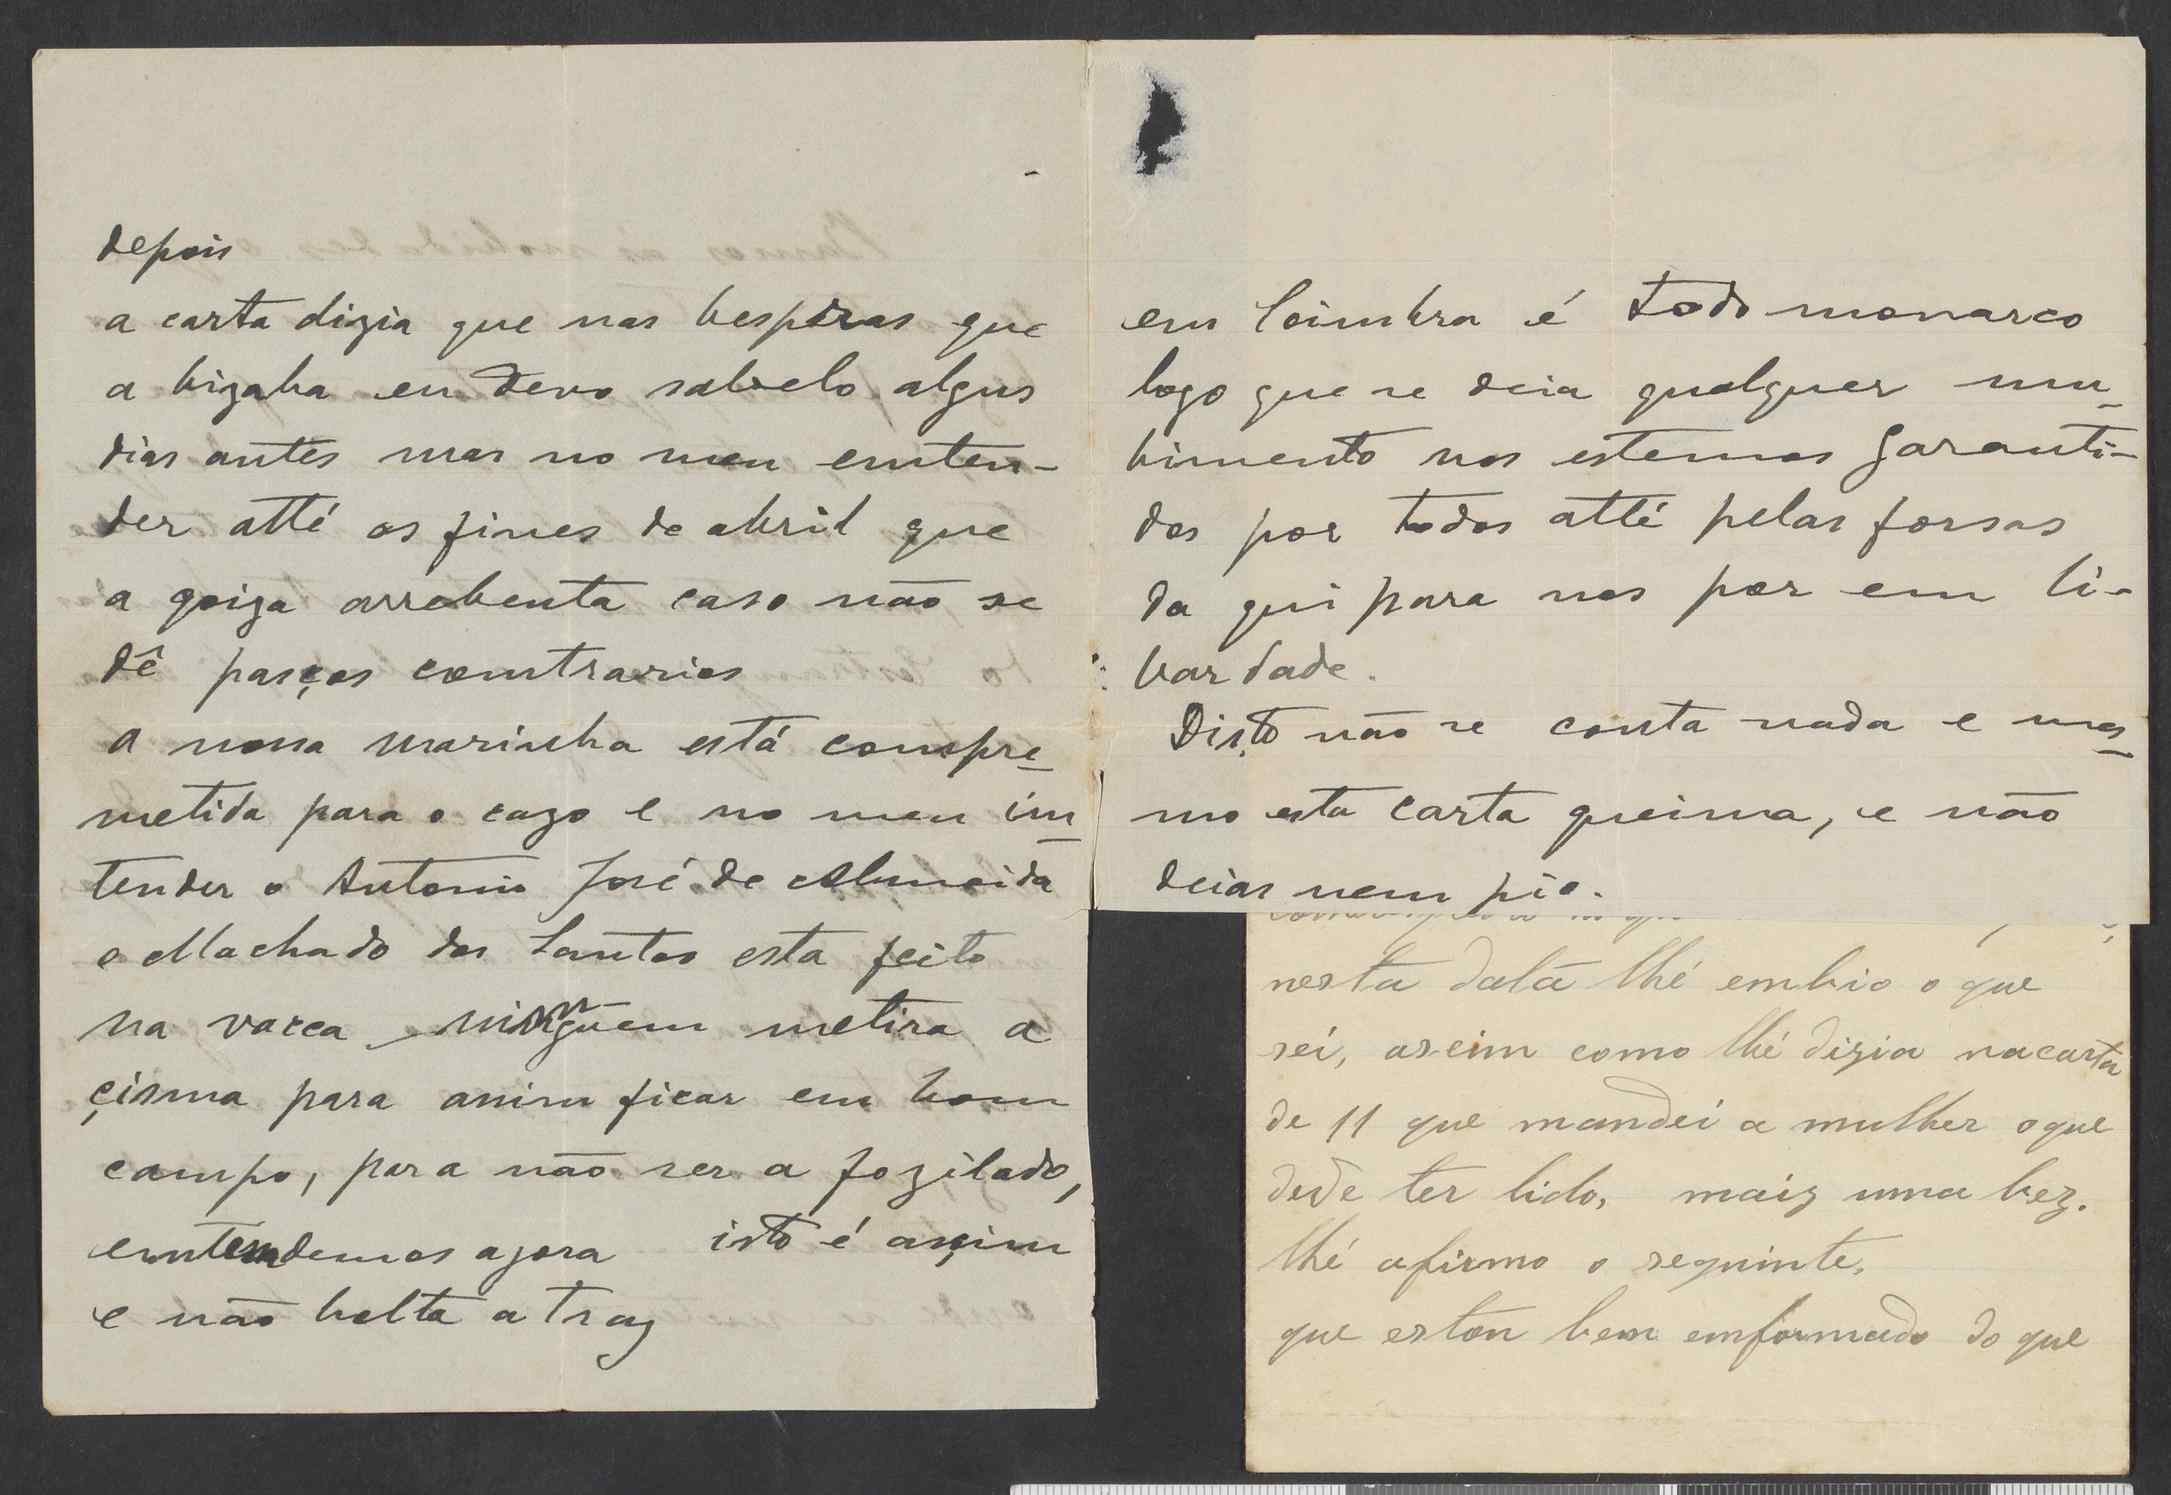 depois
a carta dizia que nas besperas que
a bizaba eu devo sabelo algus
dias antes mas no meu emten-
der atté os fines de abril que
a goiza arrebenta caso não se
dê pasços comtrarios
a nossa marinha está compre-
metida para o cazo e no meu im-
tender o Antonio José de Almeida
e Machado dos Santos esta feito
na varca ninguem metira a
çisma para asim ficar em bom
campo, para não ser a fozilado,
emtendemos agora isto é asçim
e não bolta a traz
em Coimbra é todo monarco
logo que se deia qualquer mu-
bimento nos estemos garanti-
dos por todos atté pelas forsas
da qui para nos por em li-
bardade.
Disto não se conta nada e mes-
mo esta carta queima, e não
deias nem pio.
nesta datá lhé embio o que
sei, aseim como lhé dizia na carta
de 11 que mandei a mulher o que
deve ter lido, maiz uma bez.
lhé afirmo o seguinte,
que estou bem emformado do que